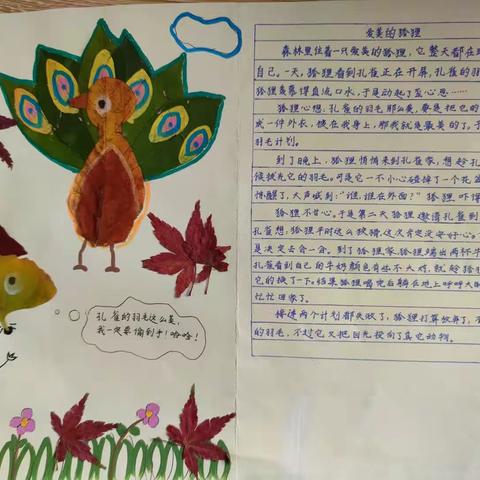 孔雀的羽毛这么美,
我一定要偷到手!哈哈!
爱美的狐狸
森林里住着一只爱美的狐狸,它整天都在
自己。一天,狐狸看到孔雀正在开屏,孔雀的羽
狐狸羡慕得直流口水,于是动起了歪心思……
狐狸心想:孔雀的羽毛那么美,要是把它的
成一件外衣,披在我身上,那我就是最美的了。于
羽毛计划。
到了晚上,狐狸悄悄来到孔雀家,想趁孔
候拔光它的羽毛。可是它一不小心碰掉了一个花
惊醒了,大声喊到:“谁,谁在外面?”狐狸吓
狐狸不甘心。于是第二天狐狸邀请孔雀到
孔雀想,狐狸平时这么狡猾,这次肯定没安好心。
是决定去会一会。到了狐狸家,狐狸端出两杯牛
孔雀看到自己的牛奶颜色有些不大对,就趁狐狸
它的换了一下。结果狐狸喝完后躺在地上呼呼大
忙忙回家了。
接连两个计划都失败了,狐狸打算放弃了,
的羽毛,不过它又把目光投向了其它动物。